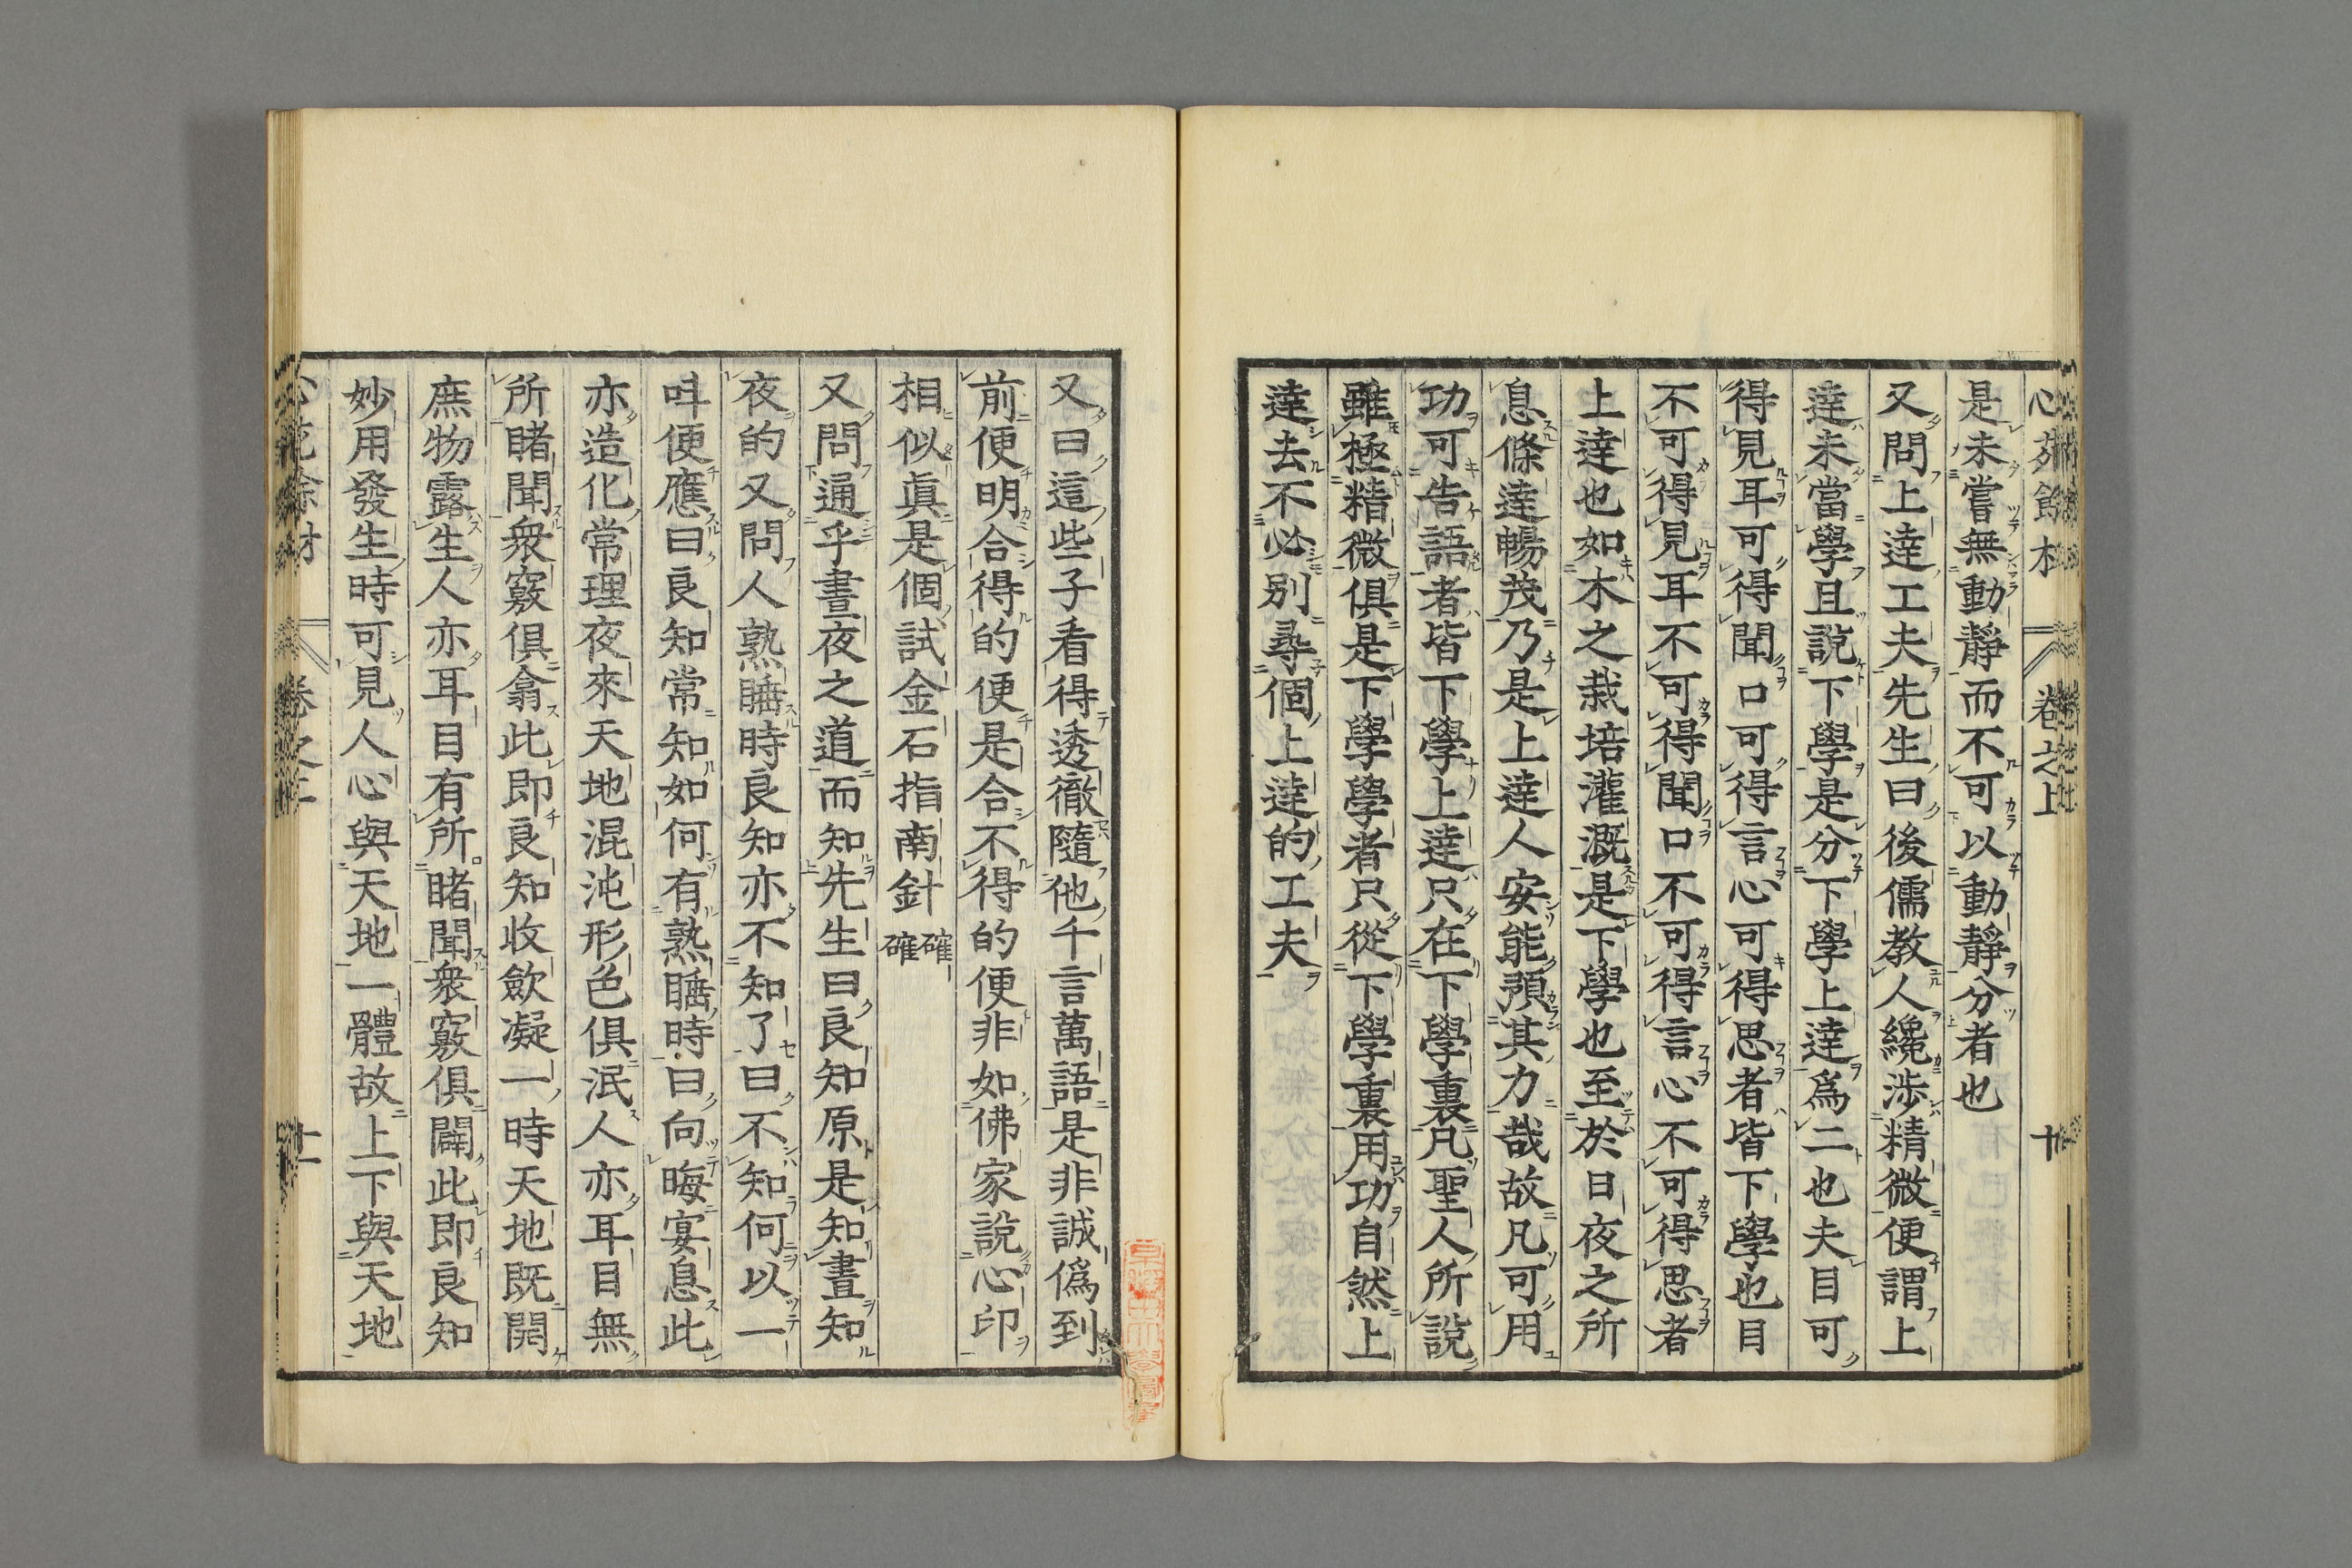 是未嘗無動靜而不可以動靜分者也
又問上達工夫先生曰後儒教人纔涉精微便謂上
達未當學且說下學是分下學上達爲二也夫目可
得見耳可得聞口可得言心可得思者皆下學也目
不可得見耳不可得聞口不可得言心不可得思者
上達也如木之栽培灌溉是下學也至於日夜之所
息條達暢茂乃是上達人安能預其力哉故凡可用
功可告語者皆下學上達只在下學裏凡聖人所說
雖極精微俱是下學學者只從下學裏用功自然上
達去不必別尋個上達的工夫
心 卷之上 十
又曰這些子看得透徹隨他千言萬語是非誠僞到
前便明合得的便是合不得的便非如佛家說心印
相似眞是個試金石指南針 確確
又問通乎晝夜之道而知先生曰良知原是知晝知
夜的又問人熟睡時良知亦不知了曰不知何以一
呌便應曰良知常知如何有熟睡時曰向晦宴息此
亦造化常理夜來天地混沌形色俱泯人亦耳目無
所睹聞衆竅俱翕此即良知收歛凝一時天地既開
庶物露生人亦耳目有所睹聞衆竅俱闢此即良知
妙用發生時可見人心與天地一體故上下與天地